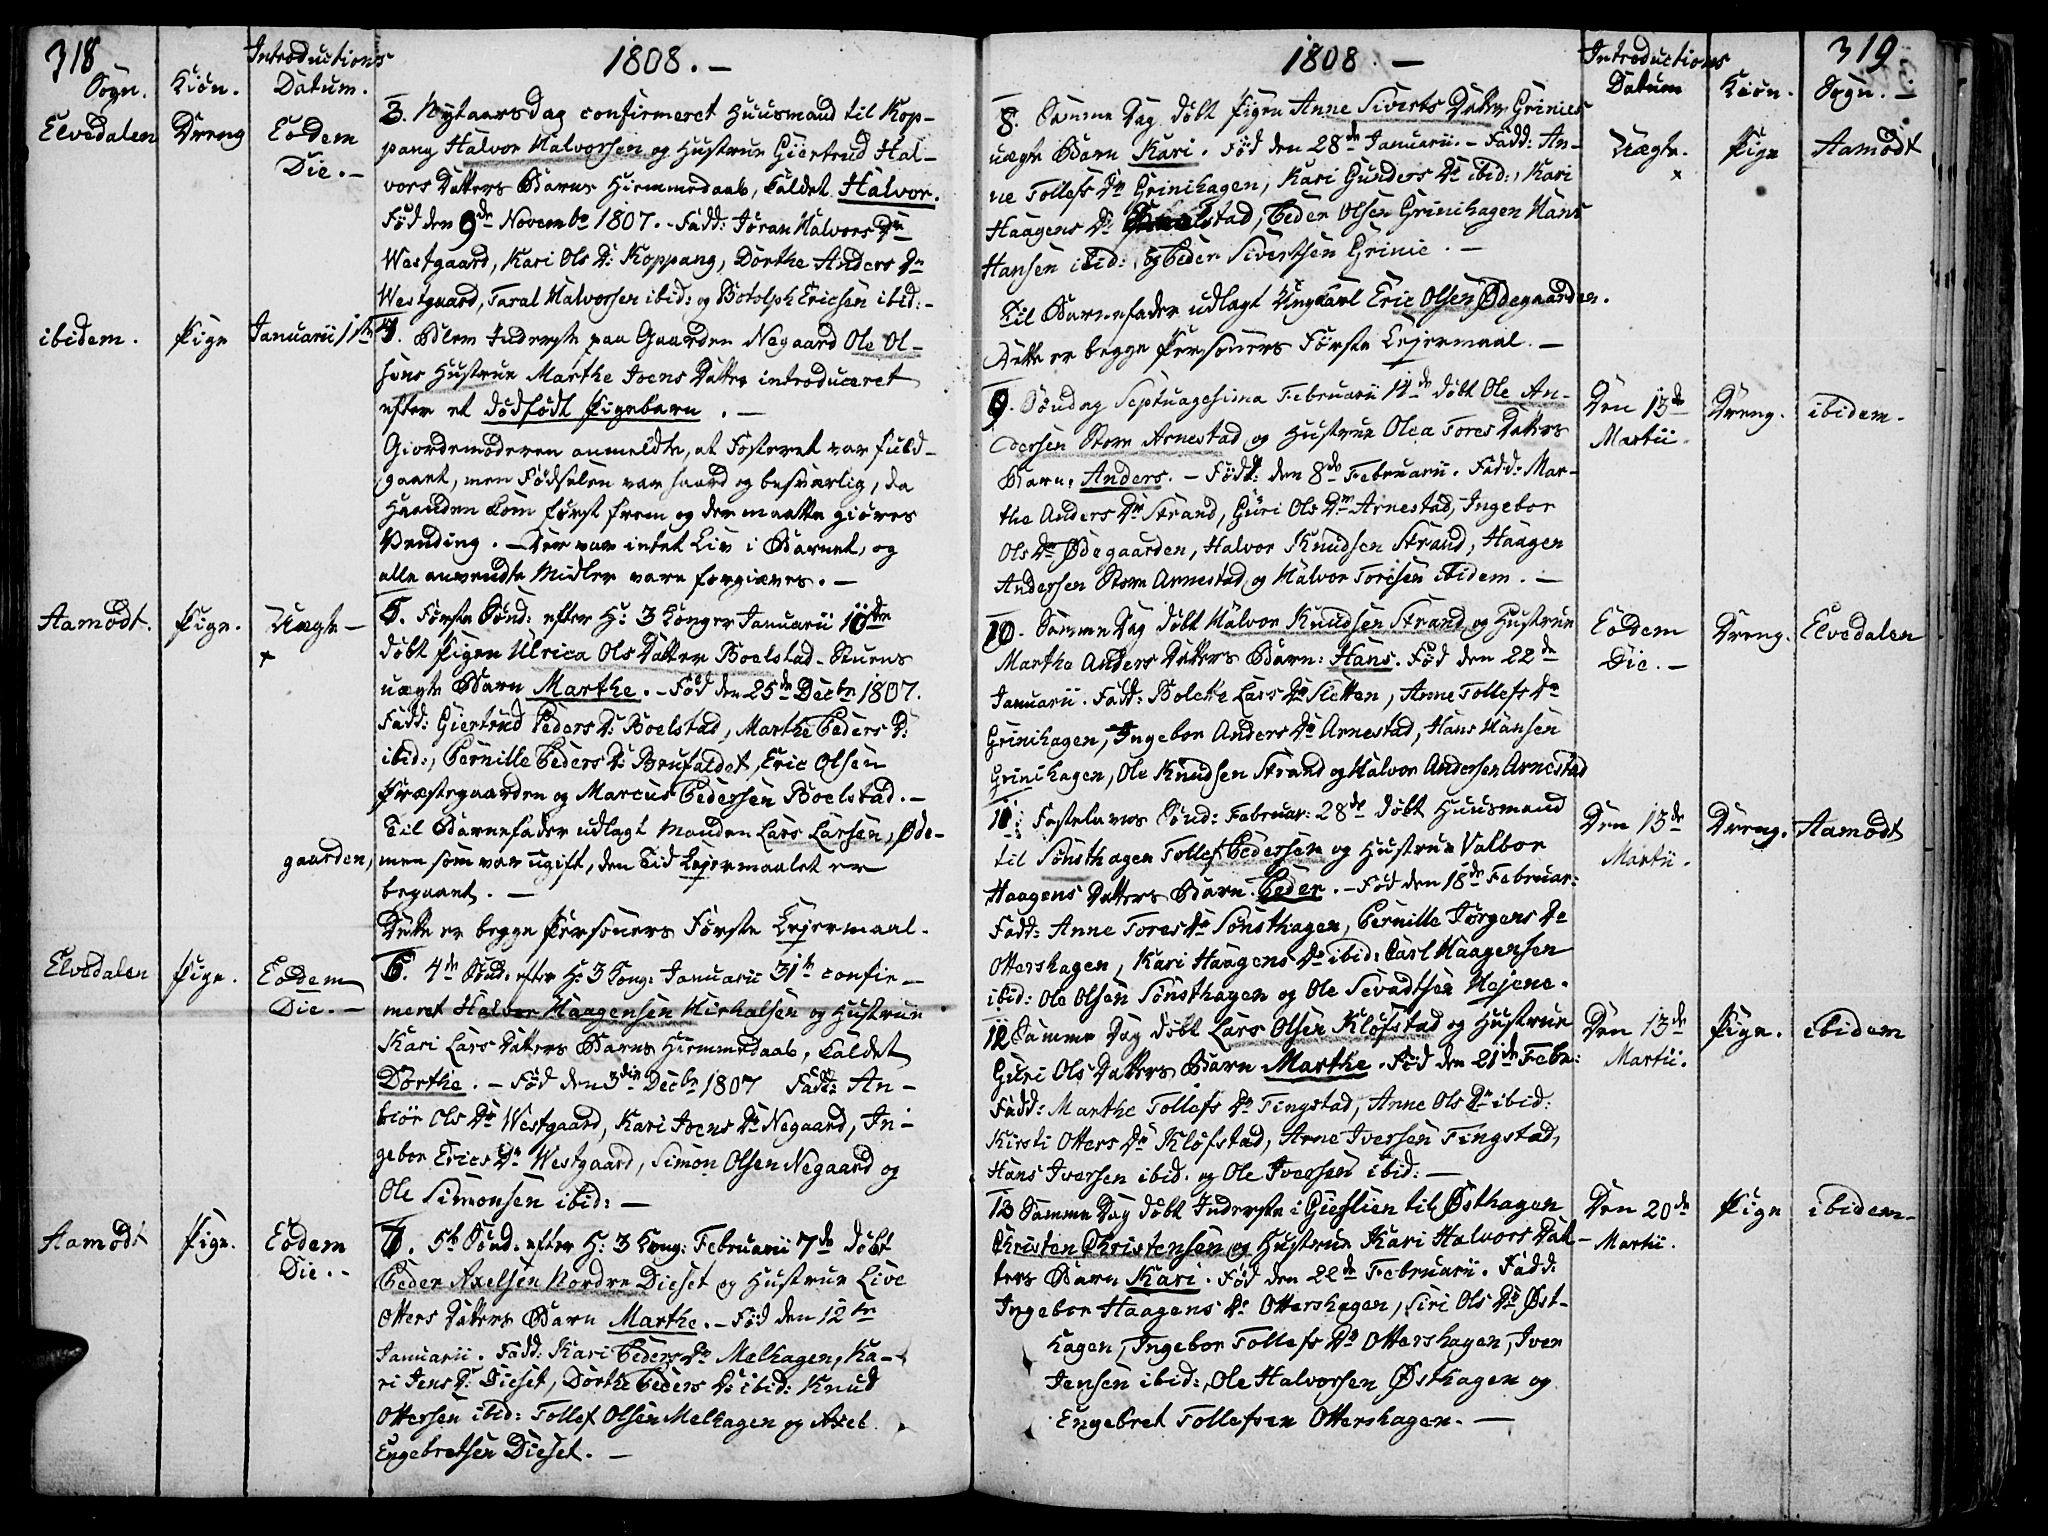 318
Sogn. Kiön. Introductions Datum. 1808. –
Elvedalen Dreng Eodem Die. –
3. Nytaarsdag confirmeret Huusmand til Kop-
pang Halvor Halvorsen og Hustrue Giertrud Hal-
vors Datters Barns Hiemmedaab, kaldet Halvor.
Föd den 9de Novembr 1807. - Fadd: Jöran Halvors Dr
Westgaard, Kari Ols D: Koppang, Dorthe Anders Dr
Westgaard, Taral Halvorsen ibid: og Botolph Ericsen ibid: -
ibidem. Pige Januarii 1ste
4. Blev Inderste paa Gaarden Negaard Ole Ol-
sens Hustrue Marthe Joens Datter introduceret
efter et dödfödt Pigebarn. –
Giordemoderen anmeldte, at Fosteret var fuld-
gaaet, men Födselen var haard og besværlig, da
Haanden kom först frem og der maatte giöres
Vending. – Der var intet Liv i Barnet, og
alle anvendte Midler vare forgiæves. –
Aamodt. Pige. Uægte –
5. Förste Sönd: efter H: 3 Konger Januarii 10de
döbt Pigen Ulrica Ols Datter Boelstad-Stuens
uægte Barn Marthe. – Föd den 25de Decbr 1807.
Fadd: Giertrud Peders D: Boelstad, Marthe Peders D:
ibid:, Pernille Peders D: Brufaldet, Eric Olsen
Præstegaarden og Marcus Pedersen Boelstad. –
Til Barnefader udlagt Manden Lars Larsen, Øde-
gaarden, men som var ugift, den Tid Lejermaalet er
begaaet. –
Dette er begge Personers Förste Lejermaal.
Elvedalen Pige. Eodem Die. –
6. 4de Sönd: efter H: 3 Kong: Januarii 31te confir-
meret Halvor Haagensen Mickalsen og Hustrue
Kari Lars Datters Barns Hiemmedaab, kaldet
Dorthe. – Föd den 3die Decbr 1807 Fadd: An-
biör Ols Dr Westgaard, Kari Joens Dr Negaard, In-
gebor Erics Dr Westgaard, Simon Olsen Negaard og
Ole Simonsen ibid: –
Aamodt Pige. Eodem Die. -
7. 5te Sönd. efter H: 3 Kong: Februarii 7de döbt
Peder Axelsen Nordre Dieset og Hustrue Live
Otters Datters Barn Marthe. – Föd den 12te
Januarii. Fadd: Kari Peders Dr Melhagen, Ka-
ri Jens D: Dieset, Dorthe Peders D: ibid: Knud
Ottersen ibid: Tollef Olsen Melhagen og Axel
Engebretsen Dieset. –
1808. – Introductions Datum Kiön. Sogn. – 319
8. Samme Dag döbt Pigen Anne Siverts Datter Grinies
uægte Barn Kari. Föd den 28de Januarii. – Fadd: An-
ne Tollefs Dr Grinihagen, Kari Gunders Dr ibid:, Kari
Haagens D: stad, Peder Olsen Grinihagen Hans
Hansen ibid: og Peder Sivertsen Grinie. –
Til Barnefader udlagt Ungkarl Eric Olsen Ødegaarden.
Dette er begge Personers Förste Lejermaal. –
Uægte. Pige Aamodt
9. Söndag Septuagesima Februarii 14de döbt Ole An-
dersen Store Arnestad og Hustrue Olea Tores Datters
Barn, Anders. – Födt: den 8de Februarii. Fadd: Mar-
the Anders Dr Strand, Guri Ols Dr Arnestad, Ingebor
Ols Dr Ødegaarden, Halvor Knudsen Strand, Haagen
Andersen Store Arnestad og Halvor Toresen ibidem. –
Den 13de Martii. Dreng. ibidem.
10. Samme Dag döbt Halvor Knudsen Strand og Hustrue
Marthe Anders Datters Barn: Hans. Föd den 22de
Januarii. Fadd: Bolette Lars Dr Sletten, Anne Tollefs Dr
Grinihagen, Ingebor Anders Dr Arnestad, Hans Hansen
Grinihagen, Ole Knudsen Strand og Halvor Andersen Arnestad
Eodem Die. – Dreng. Elvedalen
11. Fastelavns Sönd: Februar: 28de döbt Huusmand
til Sönsthagen Tollef Pedersen og Hustrue Valbor
Haagens Datters Barn Peder. – Föd den 18de Februar:
Fadd: Anne Tores Dr Sönsthagen, Pernille Jörgens Dr
Ottershagen, Kari Haagens Dr ibid: Carl Haagensen
ibid: Ole Olsen Sönsthagen og Ole Sevadtsen Hejene.
Den 13de Martii. Dreng. Aamodt
12 Samme Dag döbt Lars Olsen Klöfstad og Hustrue
Guri Ols Datters Barn Marthe. Föd den 21de Febr:
Fadd: Marthe Tollefs Dr Tingstad, Anne Ols Dr ibid:
Kirsti Otters Dr Klöfstad, Arne Iversen Tingstad,
Hans Iversen ibid. og Ole Iversen ibid: –
Den 13de Martii. Pige. ibidem
13 Samme Dag döbt Inderste i Gieslien til Østhagen
Christen Christensen og Hustrue Kari Halvors Dat-
ters Barn Kari. Föd den 22de Februarii. Fadd:
Ingebor Haagens Dr Ottershagen, Siri Ols Dr Øst-
hagen, Ingebor Tollefs Dr Ottershagen, Iver
Jensen ibid:, Ole Halvorsen Østhagen og
Engebret Tollefsen Ottershagen. –
Den 20de Martii. Pige ibidem –